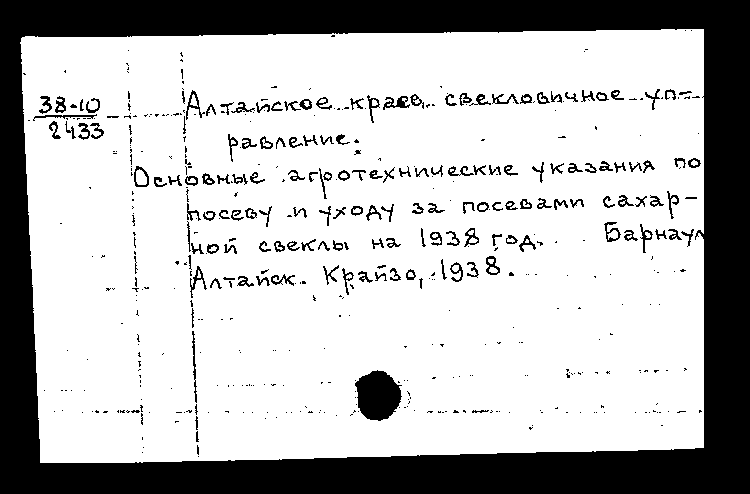 38-10
2433
Алтайское краев. свекловичное уп-
равление.
Основные агротехнические указания по
посеву и уходу за посевами сахар-
ной свеклы на 1938 год. Барнаул
Алтайск. Крайзо, 1938.